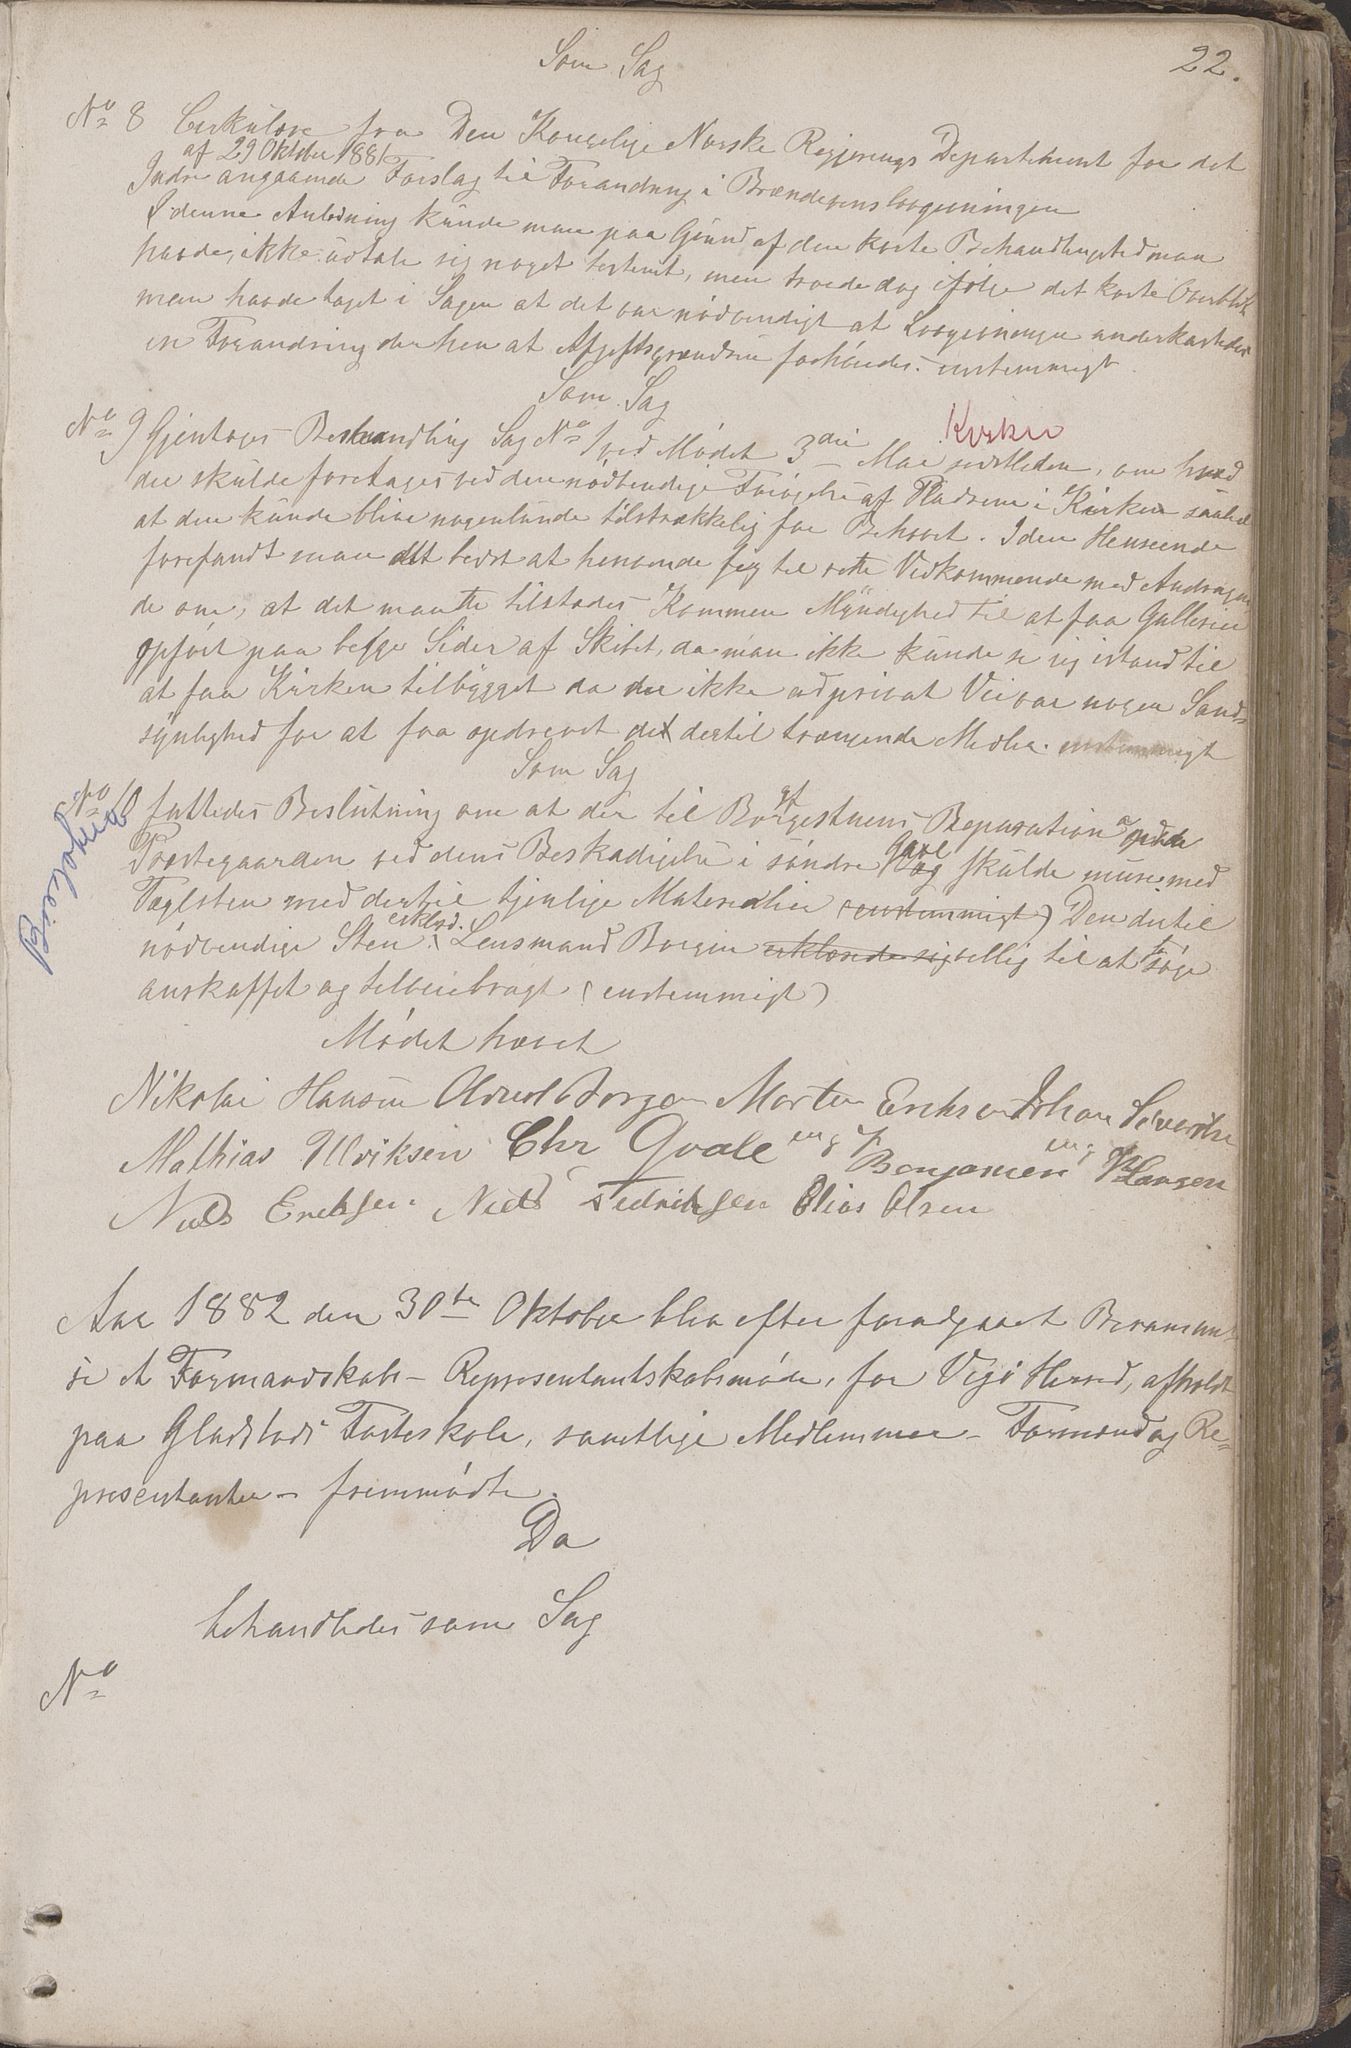 22.
Som Sag
No 8 Cirkulære fra Den Kongelige Norske Regjerings Departement for det
af 29 Oktober 1881
Indre angaaende Forslag til Forandring i Brændevinslovgivningen
I denne Anledning kunde man paa Grund af den korte Behandlingstid man
havde, ikke udtale sig noget bestemt, men troede dog ifølge det korte Overblik
man havde taget i Sagen at det var nødvendigt at Lovgivningen underkastedes
en Forandring derhen at Afgiftsgrændsen forhøiedes. enstemmigt
Som Sag
Kirken
No 9 Gjentoges Behandling Sag No 1 ved Mødet 3die Mai sidstleden, om hvad
der skulde foretages ved den nødvendige Forøgelse af Pladsene i Kirken saaled
at den kunde blive nogenlunde tilstrækkelig for Behovet. I den Henseende
forefandt man det bedst at henvende sig til rette Vedkommende med Andragen
de om, at det maatte tilstedes Kommunen Myndighed til at faa Gallerier
opført paa begge Sider af Skibet, da man ikke kunde se sig istand til
at faa Kirken tilbygget da der ikke ad privat Vei var nogen Sand-
synlighed for at faa opdrevet det dertil trængende Midler. enstemmigt
Som Sag
No 10 fattedes Beslutning om at der til Borgestuens Reparation paa
Præstegaarden ved dens Beskadigelse i søndre Gavl skulde mures med
Teglsten med dertil tjenlige Materialier (enstemmigt) Den dertil
nødvendige Sten erklærd. Lensmand Borgen erklærede sig villig til at søge
anskaffet og tilveiebragt (enstemmigt)
Borgestuen
Mødet hævet
Nikolai Hansen Olvud Borgen Morten Eriksen Johan Sivertsen
Mathias Ulriksen Chr Qvale Benjamen Hansen
Niels Erichsen Niels Fedrichsen Elias Olsen
Aar 1882 den 30te Oktober blev efter foradgaaet Berammel
se et Formandskabs- Representantskabsmøde, for Vegø Herred, afholdt
paa Gladstads Fasteskole, samtlige Medlemmer - Formænd og Re-
presentanter - fremmødte.
Da
behandledes som Sag
No